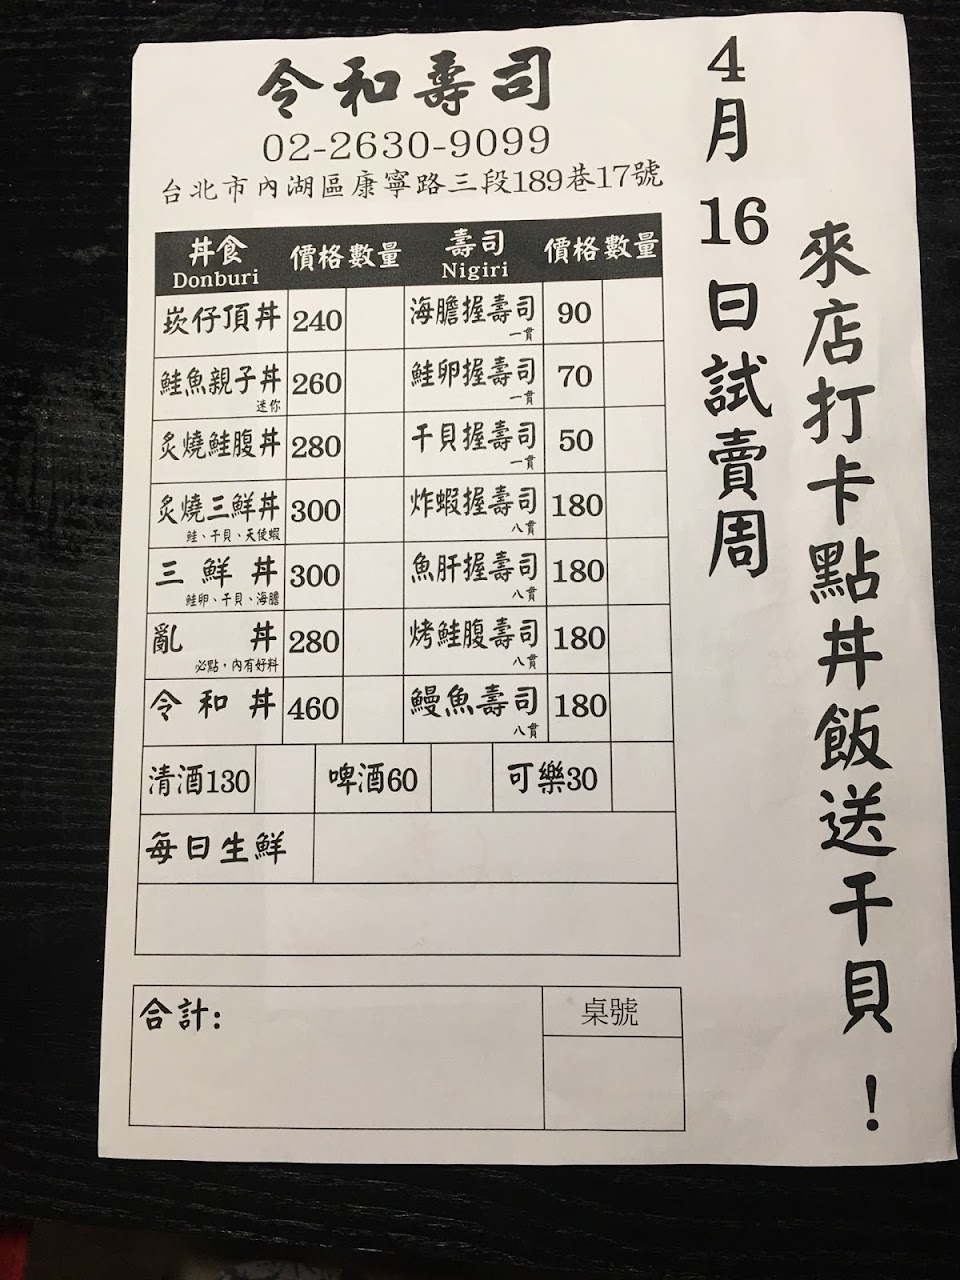 令和壽司
02-2630-9099
台北市內湖區康寧路三段189巷17號
丼食 價格 數量 壽司 價格 數量
Donburi Nigiri
崁仔頂丼 240 海膽握壽司 一貫 90
鮭魚親子丼 迷你 260 鮭卵握壽司 一貫 70
炙燒鮭腹丼 280 干貝握壽司 一貫 50
炙燒三鮮丼 300 炸蝦握壽司 八貫 180
鮭、干貝、天使蝦
三鮮丼 300 魚肝握壽司 八貫 180
鮭卵、干貝、海膽
亂丼 280 烤鮭腹壽司 八貫 180
必點，內有好料
令和丼 460 鰻魚壽司 八貫 180
清酒130 啤酒60 可樂30
每日生鮮
合計: 桌號
4月16日試賣周
來店打卡點丼飯送干貝！